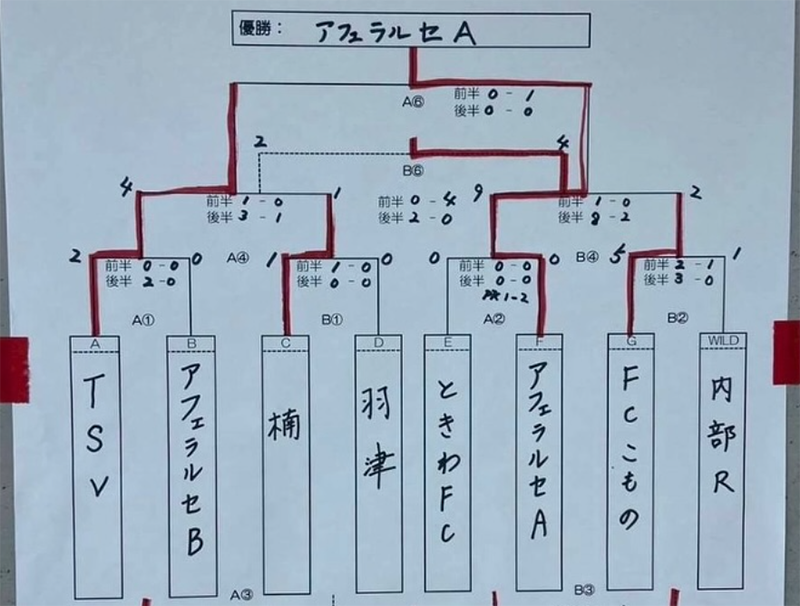 優勝： アフェラルセA
A⑥
前半 0 - 1
後半 0 - 0
2
4
B⑥
前半 0 - 4
後半 2 - 0
4
1
前半 1 - 0
後半 3 - 1
A④
9
2
前半 1 - 0
後半 8 - 2
B④
2
0
前半 0 - 0
後半 2 - 0
A①
1
0
前半 1 - 0
後半 0 - 0
B①
0
0
前半 0 - 0
後半 0 - 0
PK 1-2
A②
5
1
前半 2 - 1
後半 3 - 0
B②
A
TSV
B
アフェラルセB
C
楠
D
羽津
E
ときわFC
F
アフェラルセA
G
FCこもの
WILD
内部R
A③
B③